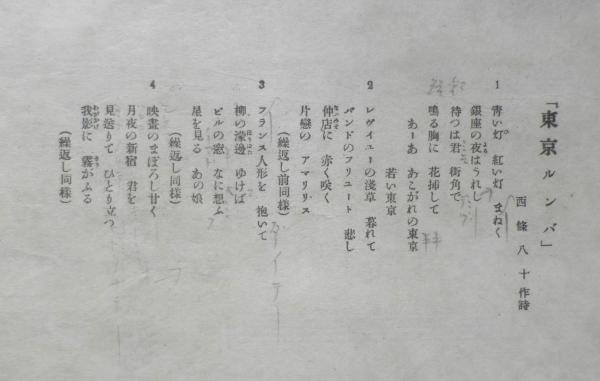 「東京ルンバ」
西條八十作詩
1
青い灯 紅い灯 まねく
銀座の夜はうれし
待つは君 街角で
鳴る胸に 花挿して
あーあ あこがれの東京
若い東京
2
レヴイユーの淺草 暮れて
バンドのフリユート 悲し
仲店に 赤く咲く
片戀の アマリリス
(繰返し前同樣)
3
フランス人形を 抱いて
柳の濠邊 ゆけば
ビルの窓 なに想ふ
星を見る あの娘
(繰返し同樣)
4
映畫のまぼろし甘く
月夜の新宿 君を
見送りて ひとり立つ
我影に 霧がふる
(繰返し同樣)
ダイテー